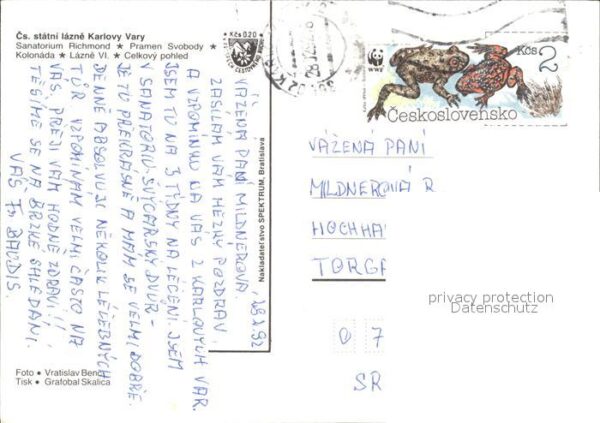 Čs. státní lázně Karlovy Vary
Sanatorium Richmond ★ Pramen Svobody ★
Kolonáda ★ Lázně VI. ★ Celkový pohled
Kčs 0,20
28.2.92
VÁŽENÁ PANÍ MILDNEROVÁ.
ZASÍLÁM VÁM HEZKÝ POZDRAV
A VZPOMÍNKU NA VÁS Z KARLOVÝCH VAR.
JSEM TU NA 3 TÝDNY NA LÉČENÍ. JSEM
V SANATORIU ŠVÝCARSKÝ DVŮR -
JE TO PŘEKRÁSNÉ A MÁM SE VELMI DOBŘE.
DENNĚ ABSOLVUJI NĚKOLIK LÉČEBNÝCH
TÚR VZPOMÍNÁM VELMI ČASTO NA
VÁS, PŘEJI VÁM HODNĚ ZDRAVÍ!!
TĚŠÍME SE NA BRZKÉ SHLEDÁNÍ.
VÁŠ
Nakladatelstvo SPEKTRUM, Bratislava
Foto ● Vratislav Beneš
Tisk ● Grafobal Skalica
WWF
Kčs 2
Československo
VÁŽENÁ PANÍ
MILDNEROVÁ R
HOCHHA
TORGA
privacy protection
Datenschutz
0 7
SR